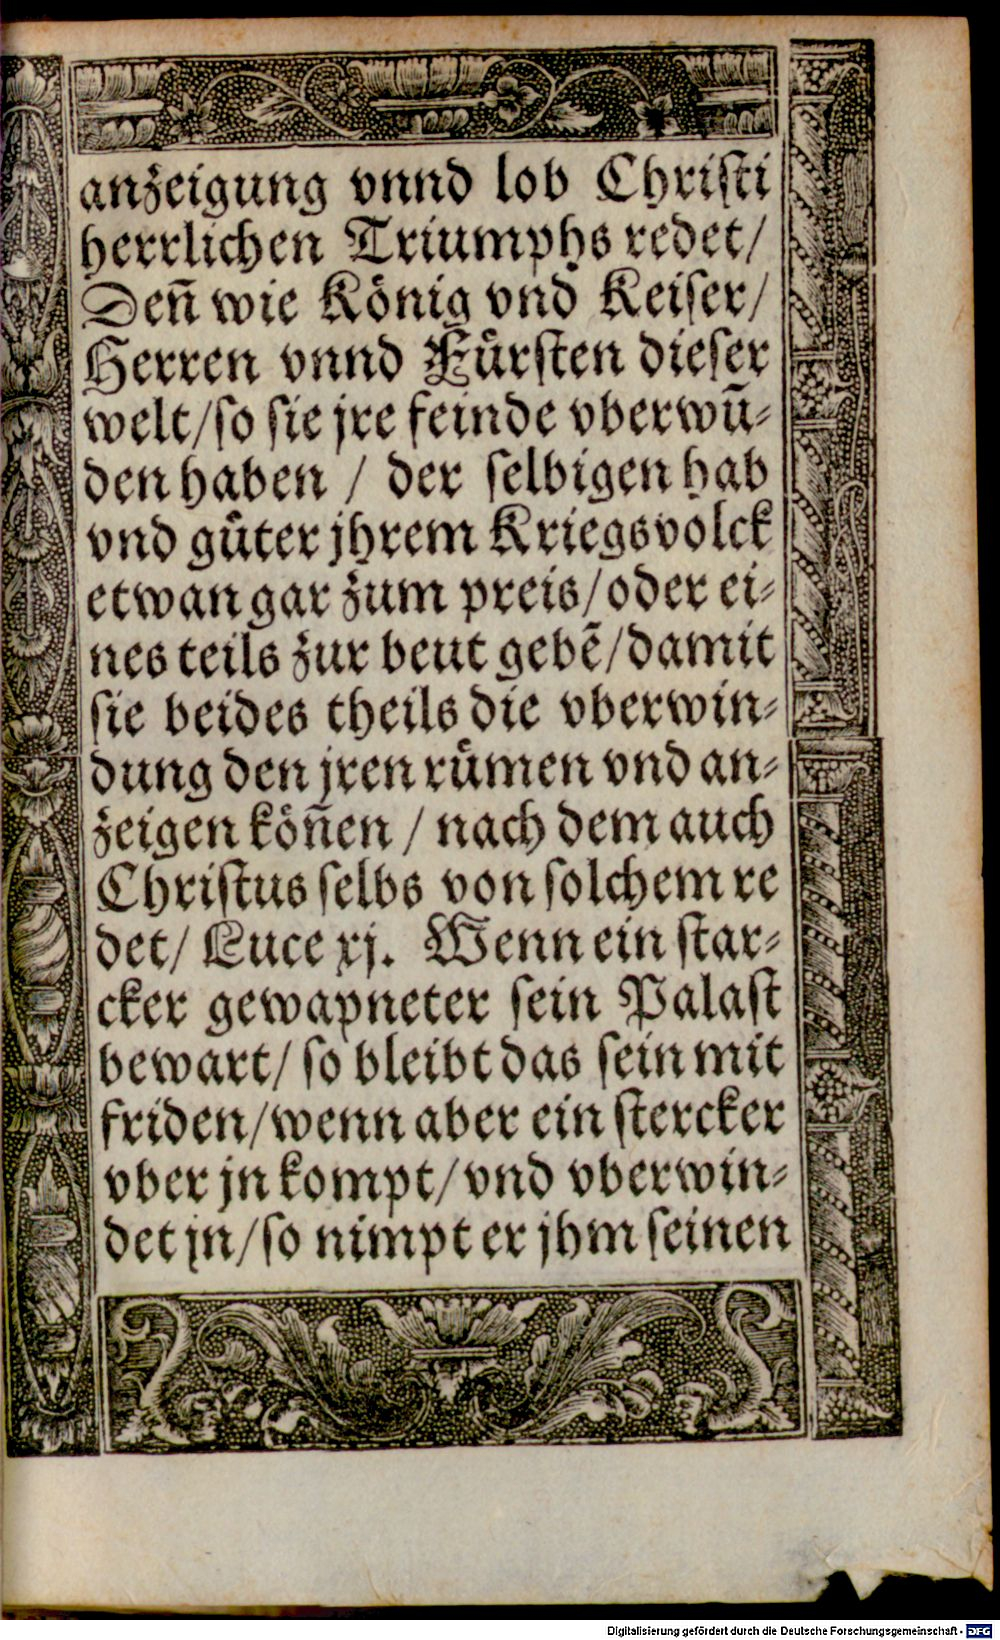 anzeigung vnnd lob Chriſti
herrlichen Triumphs redet/
Deñ wie König vnd Keiſer/
Herren vnnd Fürſten dieſer
welt/ſo ſie jre feinde vberwū-
den haben / der ſelbigen hab
vnd güter jhrem Kriegsvolck
etwan gar zum preis/oder ei-
nes teils zur beut gebē/damit
ſie beides theils die vberwin-
dung den jren rümen vnd an-
zeigen köñen / nach dem auch
Chriſtus ſelbs von ſolchem re
det/ Luce xj. Wenn ein ſtar-
cker gewapneter ſein Palaſt
bewart/ ſo bleibt das ſein mit
friden/wenn aber ein ſtercker
vber jn kompt/vnd vberwin-
det jn/ſo nimpt er jhm ſeinen
Digitalisierung gefördert durch die Deutsche Forschungsgemeinschaft - DFG